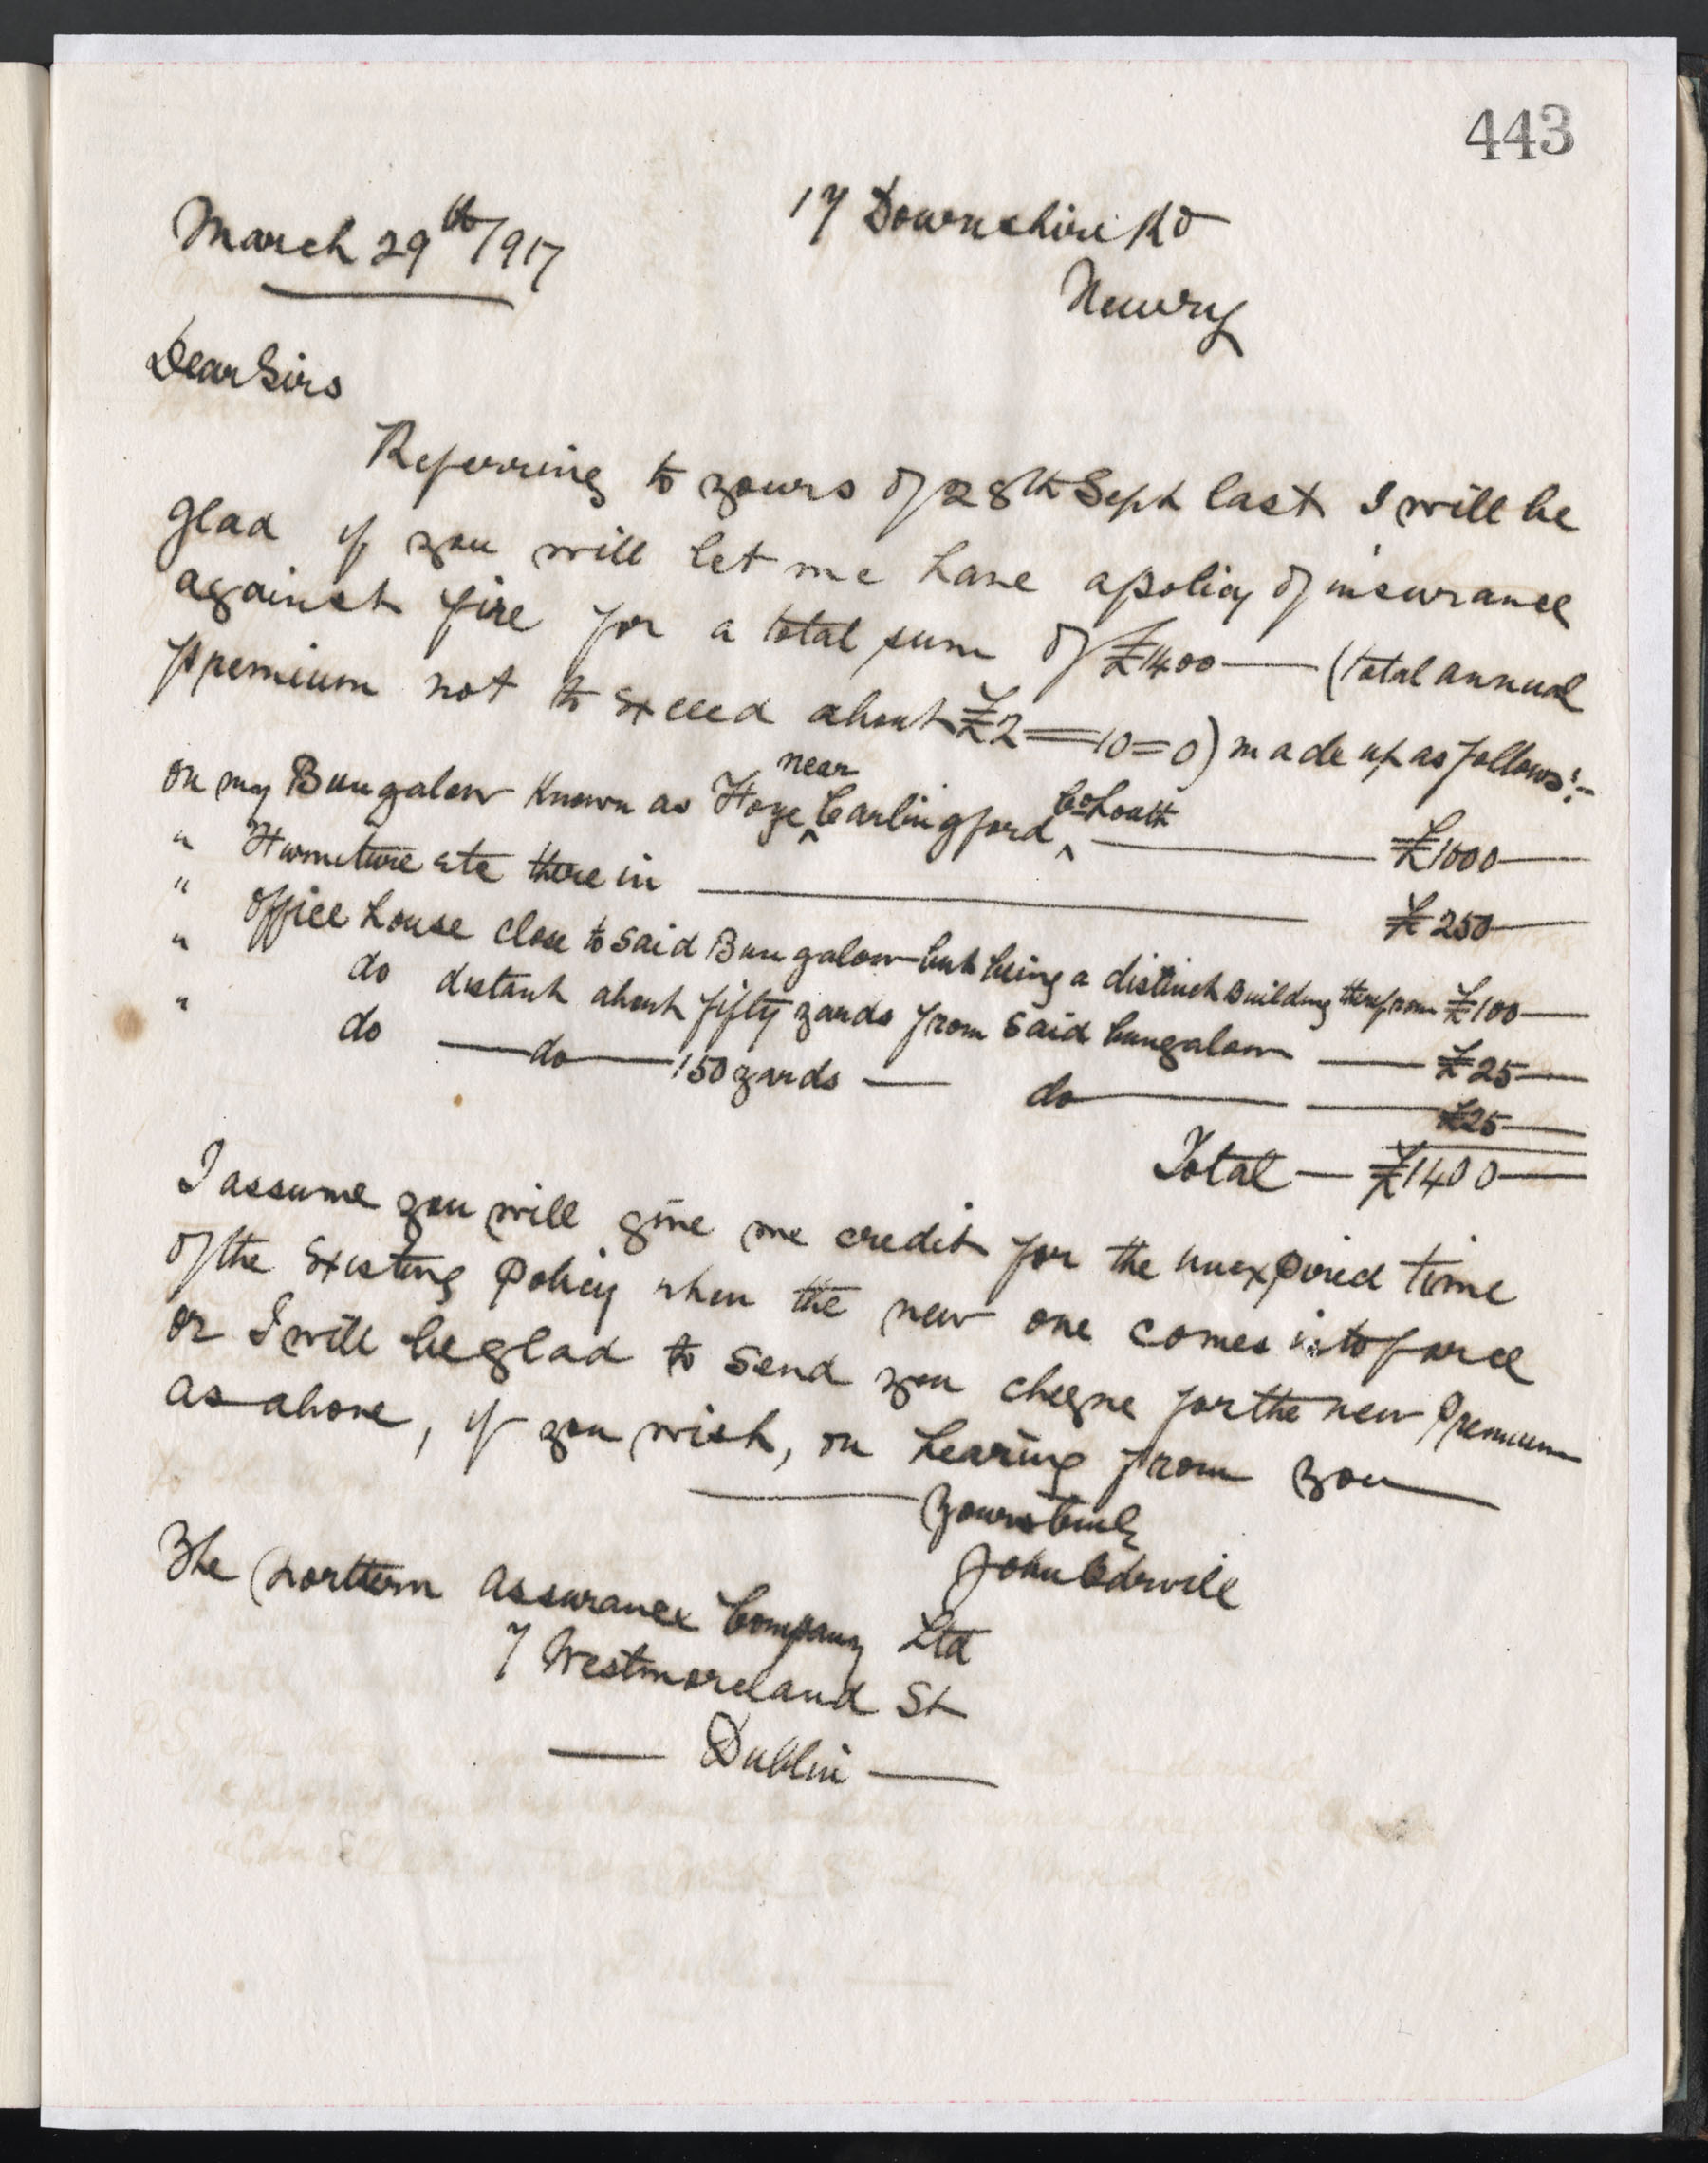 443
March 29th/917
17 Downshire Rd
Newry
Dear Sirs
Referring to yours of 28th Sept last I will be
glad if you will let me have a policy of insurance
against fire for a total sum of £1400 — (total annual
premium not to exceed about £2=10=0) made up as follows:-
on my Bungalow known as near Carlingford Co Louth — £1000 —
" Furniture etc therein — £250 —
" office house close to said Bungalow but being a distinct building therefrom £100 —
" do distant about fifty yards from said bungalow — £25 —
" do — do — 150 yards — do — £25 —
Total — £1400 —
I assume you will give me credit for the unexpired time
of the existing Policy when the new one comes into force
or I will be glad to send you cheque for the new Premium
as above, if you wish, on hearing from you —
— Yours truly
John
The Northern Assurance Company Ltd
7 Westmoreland St
— Dublin —